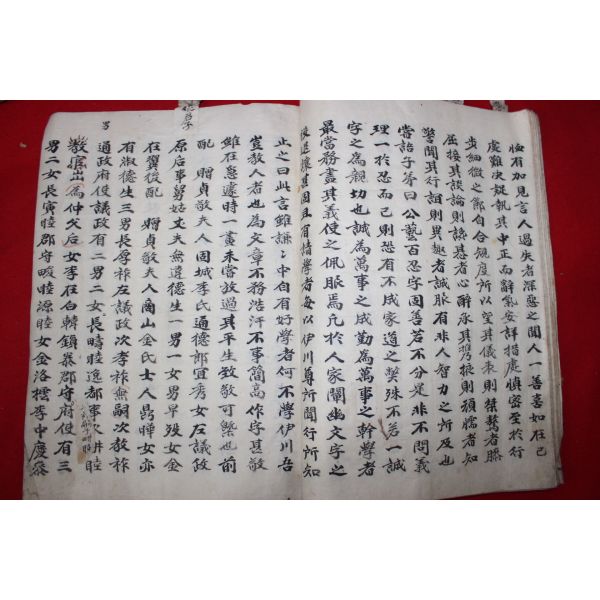 恤有加見言人過失者深惡之聞人一善喜如在己
處難決疑執其中正而辭氣安詳措處愼密至於行
步細微之節自合規度所以望其儀表則桀驁者服
屈接其談論則談慕者心醉承其獎掖則頑懦者知
警聞其行誼則異趣者誠服有非人智力之所及也
嘗詒子等曰公藝百忍字固善若不分是非不問義
理一於忍而已則恐有不成家道之弊殊不若一誠
字之爲親切也誠爲萬事之成勤爲萬事之幹學者
最當務盡其義使之佩服焉凡於人家闡幽文字之
後進據甚固且有請學者每以伊川尊所聞行所知
止之曰此言雖謙謙中自有好學者何不學伊川吾
豈敎人者也爲文章不務浩汗不事簡高作字甚敬
雖在怱遽時一畫未嘗放過其平生致敬可槩也前
配 贈貞敬夫人固城李氏通德郎宜秀女左議政
原后事舅姑丈夫無違德生一男一女男早歿女金
在翼後配 贈貞敬夫人商山金氏士人昌曄女亦
有淑德生三男長厚祚左議政次孝祚無嗣次敎祚
通政府使議政有二男二女長疇睦逸都事次井睦
敎府出爲仲父后女李在白轉鎭泰郡守府使有三
男二女長寅睦郡守畯睦源睦女金洛
李中慶
男